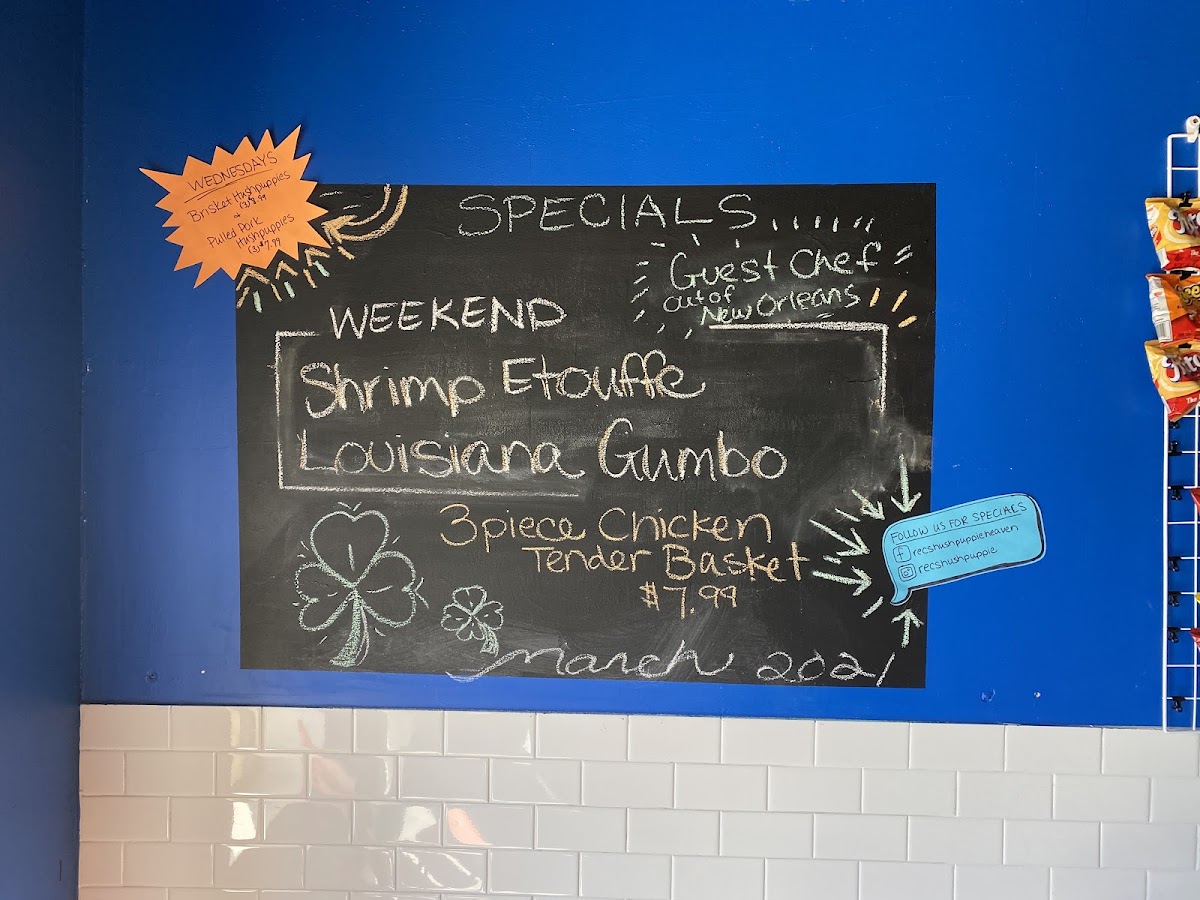 WEDNESDAYS
Brisket Hushpuppies
(3) $8.99
+
Pulled Pork
Hushpuppies
(3) $7.99
SPECIALS
Guest Chef
out of
New Orleans
WEEKEND
Shrimp Etouffe
Louisiana Gumbo
3 piece Chicken
Tender Basket
$7.99
March 2021
FOLLOW US FOR SPECIALS
f recshushpuppieheaven
recshushpuppie